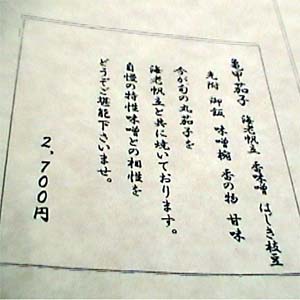 亀甲茄子 海老帆立 香味噌 はじき枝豆
先附 御飯 味噌椀 香の物 甘味
今が旬の丸茄子を
海老帆立と共に焼いております。
自慢の特性味噌との相性を
どうぞご堪能下さいませ。
2,700円